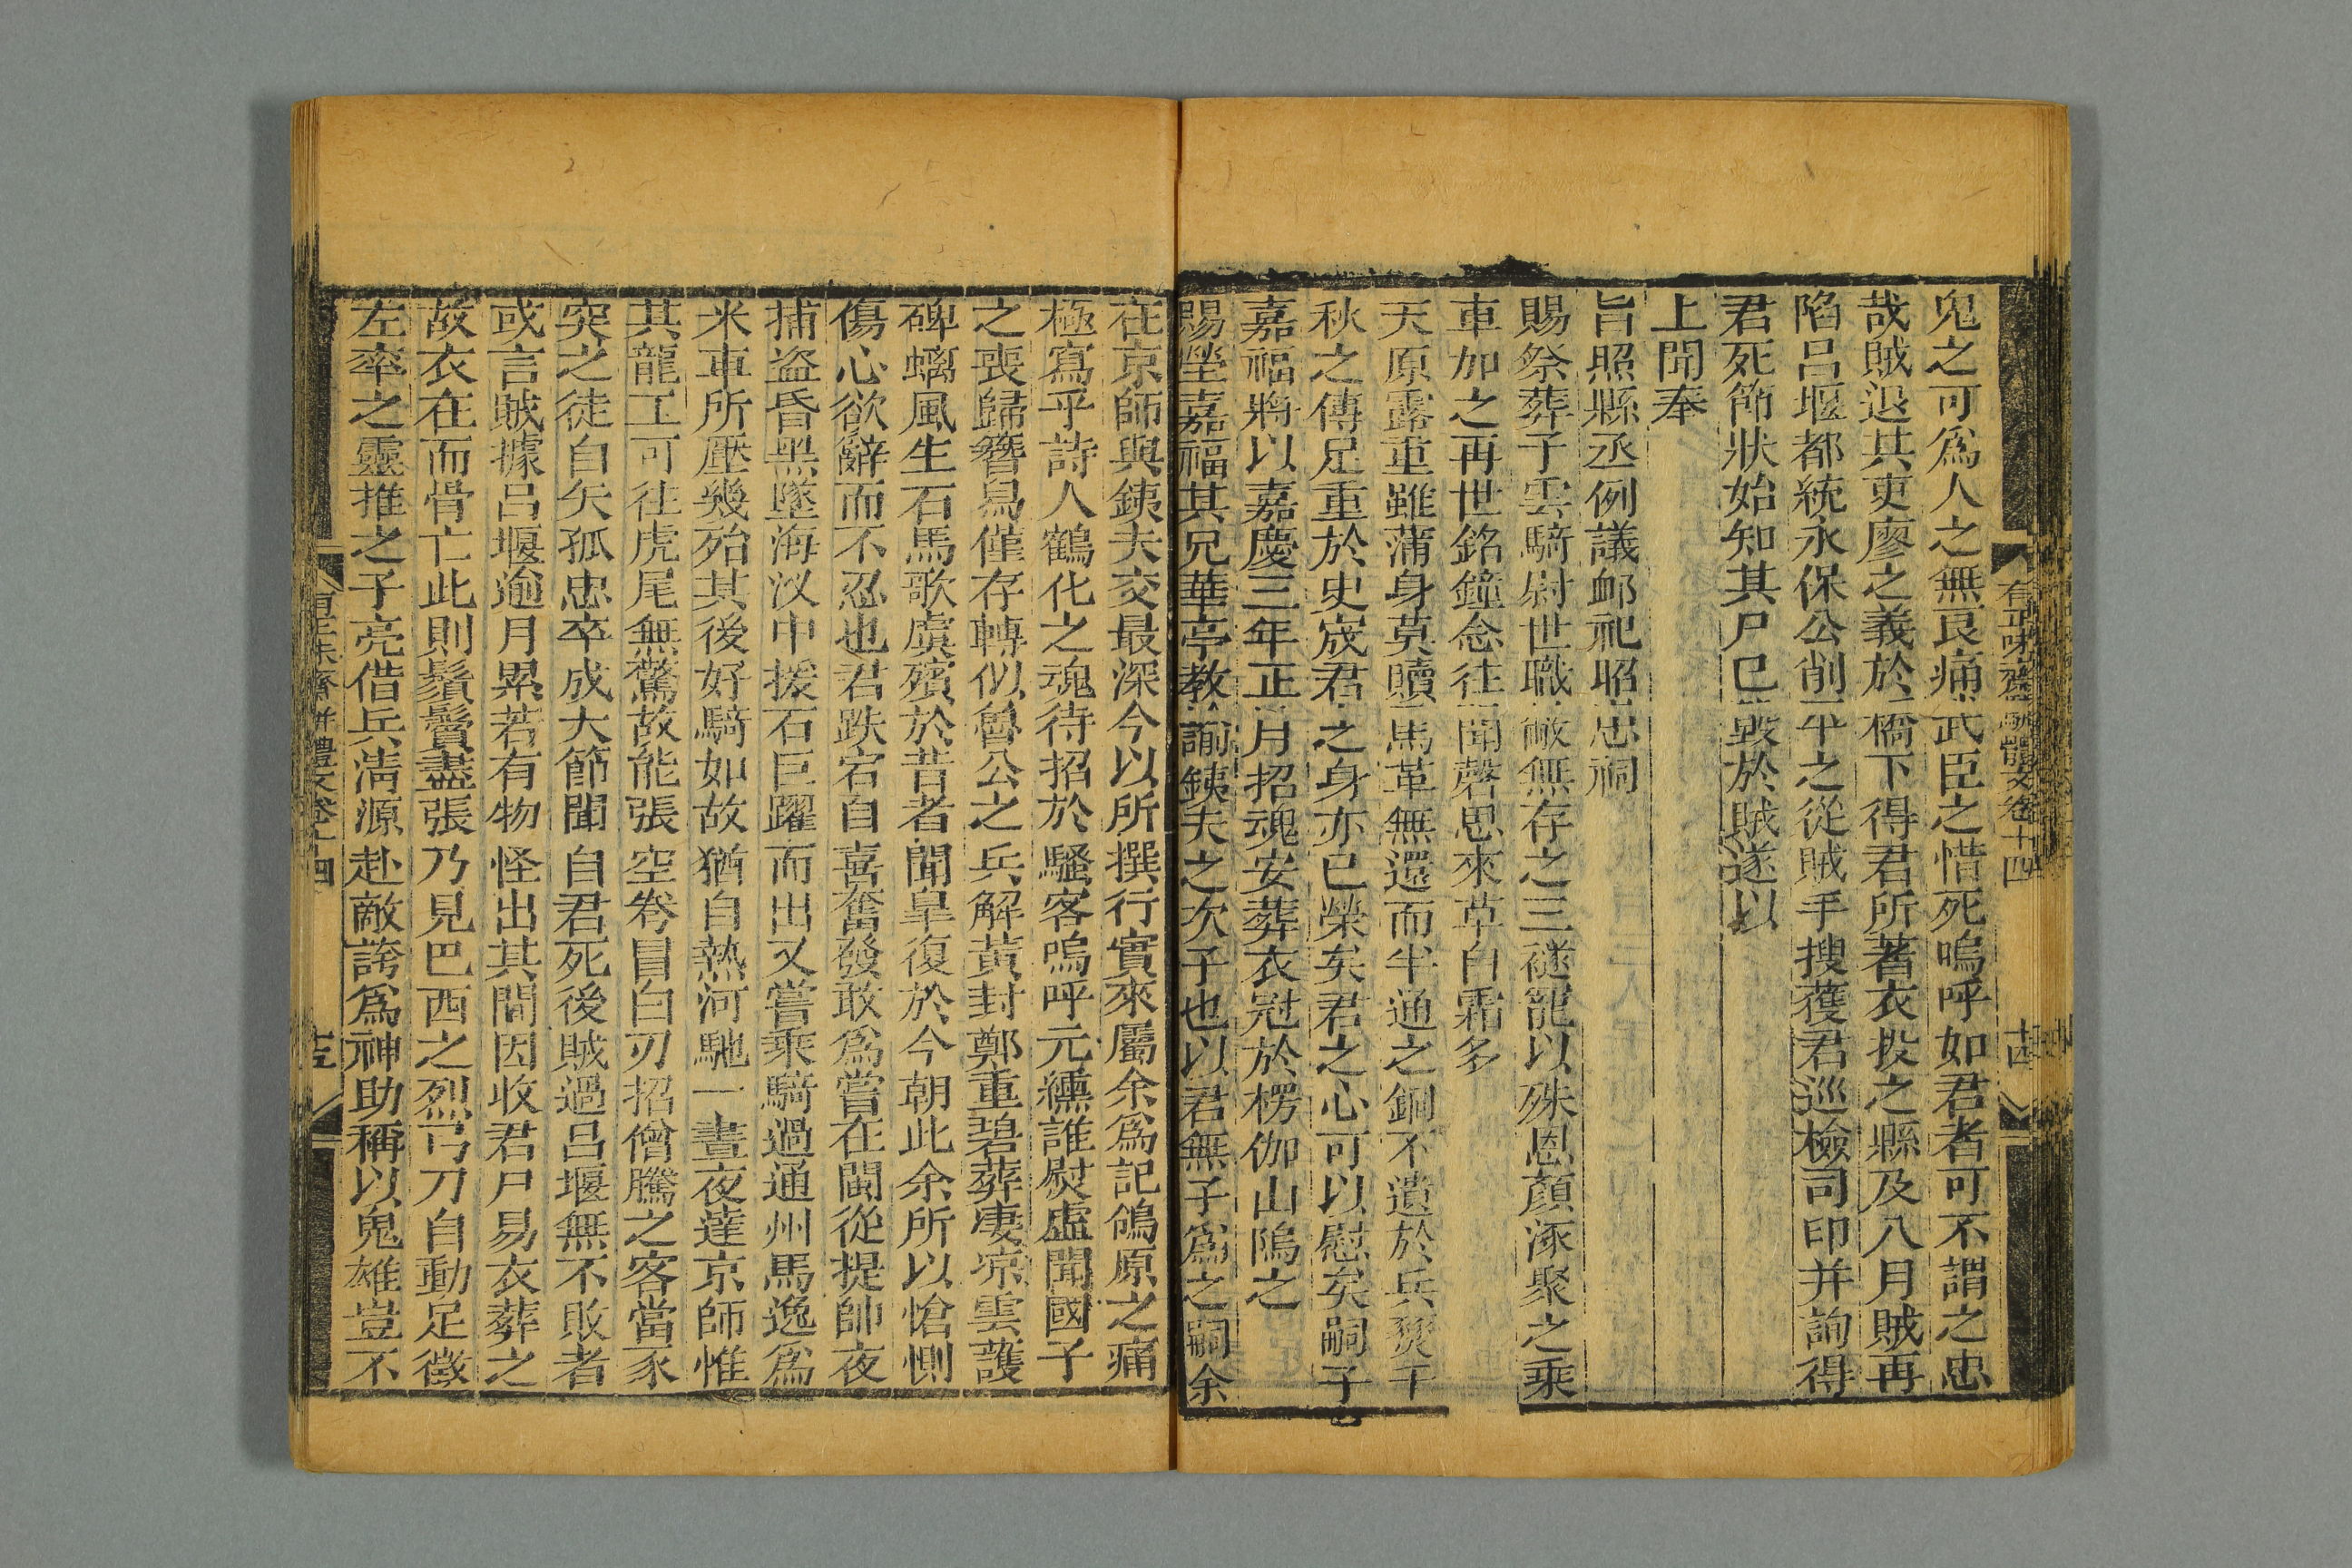 有正味齋駢體文卷十四
十四
鬼之可爲人之無良痛武臣之惜死嗚呼如君者可不謂之忠
哉賊退其吏廖之義於橋下得君所著衣投之縣及八月賊再
陷呂堰都統永保公削平之從賊手搜獲君巡檢司印并詢得
君死節狀始知其尸已毀於賊遂以
上聞奉
旨照縣丞例議卹祀昭忠祠
賜祭葬子雲騎尉世職敝無存之三襚寵以殊恩顏涿聚之乘
車加之再世銘鐘念往聞磬思來草白霜多
天原露重雖蒲身莫贖馬革無還而半通之銅不遺於兵燹千
秋之傳足重於史宬君之身亦已榮矣君之心可以慰矣嗣子
嘉福將以嘉慶三年正月招魂安葬衣冠於楞伽山隖之
賜塋嘉福其兄華亭教諭銕夫之次子也以君無子爲之嗣余
在京師與銕夫交最深今以所撰行實來屬余爲記鴒原之痛
極寫乎詩人鶴化之魂待招於騷客嗚呼元纁誰熨虛聞國子
之喪歸簪舄僅存轉似魯公之兵解黃封鄭重碧葬凄凉雲護
碑螭風生石馬歌虞殯於昔者聞皐復於今朝此余所以愴惻
傷心欲辭而不忍也君跌宕自喜奮發敢爲嘗在閩從提帥夜
捕盜昏黑墜海汊中援石巨躍而出又嘗乘騎過通州馬逸爲
米車所壓幾殆其後好騎如故猶自熱河馳一晝夜達京師惟
其龍工可往虎尾無驚故能張空弮冒白刃招僧騰之客當豕
突之徒自矢孤忠卒成大節聞自君死後賊過呂堰無不敗者
或言賊據呂堰逾月畧若有物怪出其間因收君尸易衣葬之
故衣在而骨亡此則鬚鬢盡張乃見巴西之烈弓刀自動足徵
左率之靈推之子亮借兵淸源赴敵誇爲神助稱以鬼雄豈不
有正味齋駢體文卷十四
十五